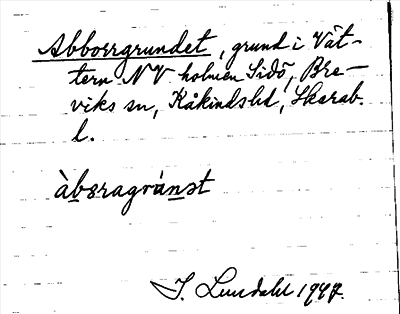 Abborrgrundet, grund i Vät-
tern NV holmen Sidö, Bre-
viks sn, Kåkinds hd, Skarab.
l.
àbɷragrúnst
I. Lundahl 1947.